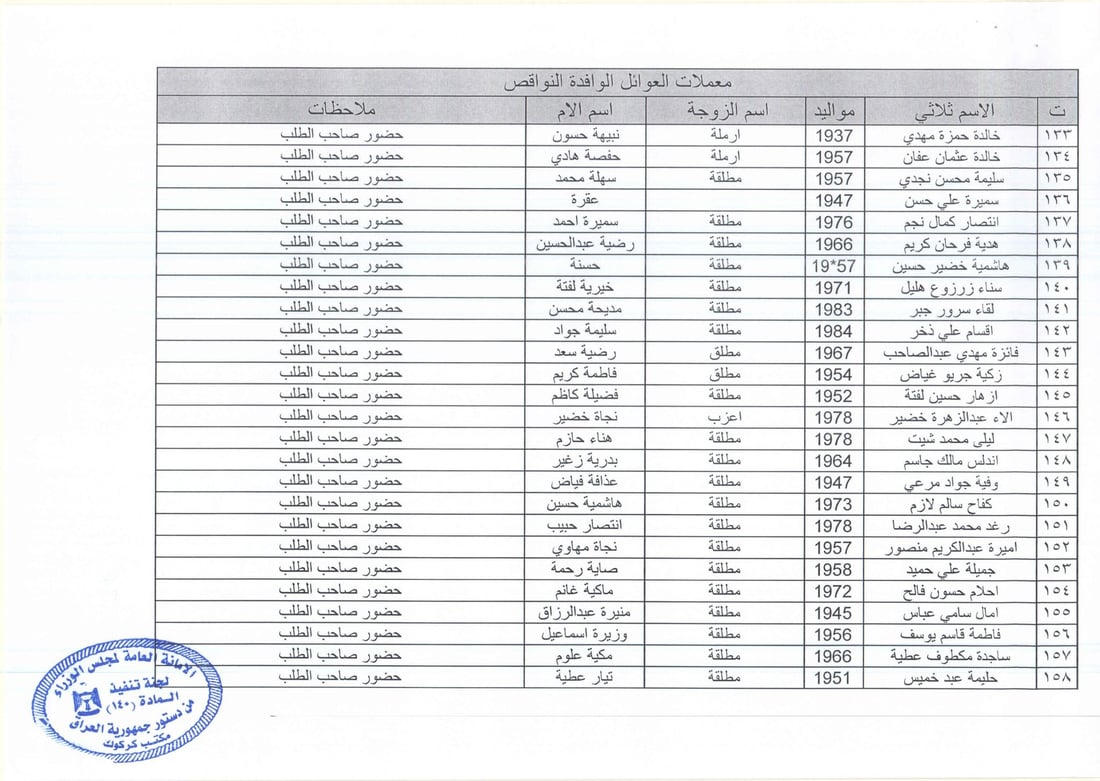 معملات العوائل الوافدة النواقص
ت الاسم ثلاثي مواليد اسم الزوجة اسم الام ملاحظات
١٣٣ خالدة حمزة مهدي 1937 ارملة نبيهة حسون حضور صاحب الطلب
١٣٤ خالدة عثمان عفان 1957 ارملة حفصة هادي حضور صاحب الطلب
١٣٥ سليمة محسن نجدي 1957 مطلقة سهلة محمد حضور صاحب الطلب
١٣٦ سميرة علي حسن 1947 عقرة حضور صاحب الطلب
١٣٧ انتصار كمال نجم 1976 مطلقة سميرة احمد حضور صاحب الطلب
١٣٨ هدية فرحان كريم 1966 مطلقة رضية عبدالحسين حضور صاحب الطلب
١٣٩ هاشمية خضير حسين 19*57 مطلقة حسنة حضور صاحب الطلب
١٤٠ سناء زرزوع هليل 1971 مطلقة خيرية لفتة حضور صاحب الطلب
١٤١ لقاء سرور جبر 1983 مطلقة مديحة محسن حضور صاحب الطلب
١٤٢ اقسام علي ذخر 1984 مطلقة سليمة جواد حضور صاحب الطلب
١٤٣ فائزة مهدي عبدالصاحب 1967 مطلق رضية سعد حضور صاحب الطلب
١٤٤ زكية جريو غياض 1954 مطلق فاطمة كريم حضور صاحب الطلب
١٤٥ ازهار حسين لفتة 1952 مطلقة فضيلة كاظم حضور صاحب الطلب
١٤٦ الاء عبدالزهرة خضير 1978 اعزب نجاة خضير حضور صاحب الطلب
١٤٧ ليلى محمد شيت 1978 مطلقة هناء حازم حضور صاحب الطلب
١٤٨ اندلس مالك جاسم 1964 مطلقة بدرية زغير حضور صاحب الطلب
١٤٩ وفية جواد مرعي 1947 مطلقة عذافة فياض حضور صاحب الطلب
١٥٠ كفاح سالم لازم 1973 مطلقة هاشمية حسين حضور صاحب الطلب
١٥١ رغد محمد عبدالرضا 1978 مطلقة انتصار حبيب حضور صاحب الطلب
١٥٢ اميرة عبدالكريم منصور 1957 مطلقة نجاة مهاوي حضور صاحب الطلب
١٥٣ جميلة علي حميد 1958 مطلقة صاية رحمة حضور صاحب الطلب
١٥٤ احلام حسون فالح 1972 مطلقة ماكية غانم حضور صاحب الطلب
١٥٥ امال سامي عباس 1945 مطلقة منيرة عبدالرزاق حضور صاحب الطلب
١٥٦ فاطمة قاسم يوسف 1956 مطلقة وزيرة اسماعيل حضور صاحب الطلب
١٥٧ ساجدة مكطوف عطية 1966 مطلقة مكية علوم حضور صاحب الطلب
١٥٨ حليمة عبد خميس 1951 مطلقة تيار عطية حضور صاحب الطلب
الامانة العامة لمجلس الوزراء
لجنة تنفيذ
المادة (١٤٠)
من دستور جمهورية العراق
مكتب كركوك